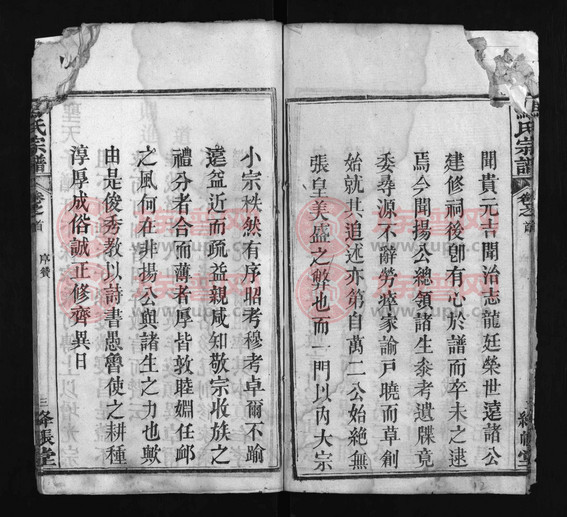 氏宗譜
卷之首
聞貴元吉聞治志龍廷榮世遠諸公
建修祠後卽有心於譜而卒未之逮
焉今聞揚公總領諸生叅考遺牒竟
委尋源不辭勞瘁家諭戸曉而草創
始就其追述亦第自萬二公始絶無
張皇美盛之弊也而一門以內大宗
小宗秩然有序昭考穆考卓爾不踰
遠益近而疏益親咸知敬宗收族之
禮分者合而薄者厚皆敦睦婣任卹
之風何在非揚公與諸生之力也歟
由是俊秀教以詩書愚魯使之耕種
淳厚成俗誠正修齊異日
氏宗譜
卷之首
序贊
三
帳堂
族譜网
www.zupu.cn